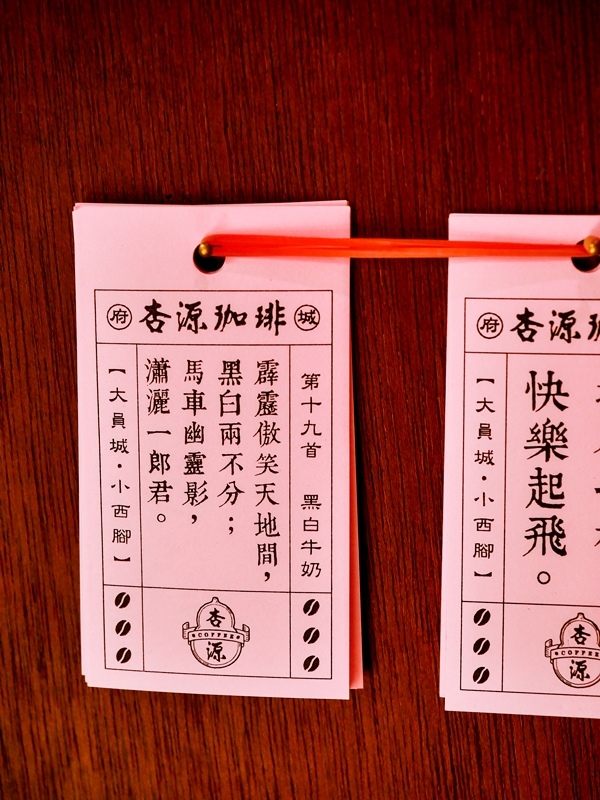 府 杏源珈琲 城
第十九首 黑白牛奶
霹靂傲笑天地間，
黑白兩不分；
馬車幽靈影，
瀟灑一郎君。
【大員城·小西腳】
杏
COFFEE
源
府 杏源珈
快樂起飛。
【大員城·小西腳】
杏
COFFEE
源